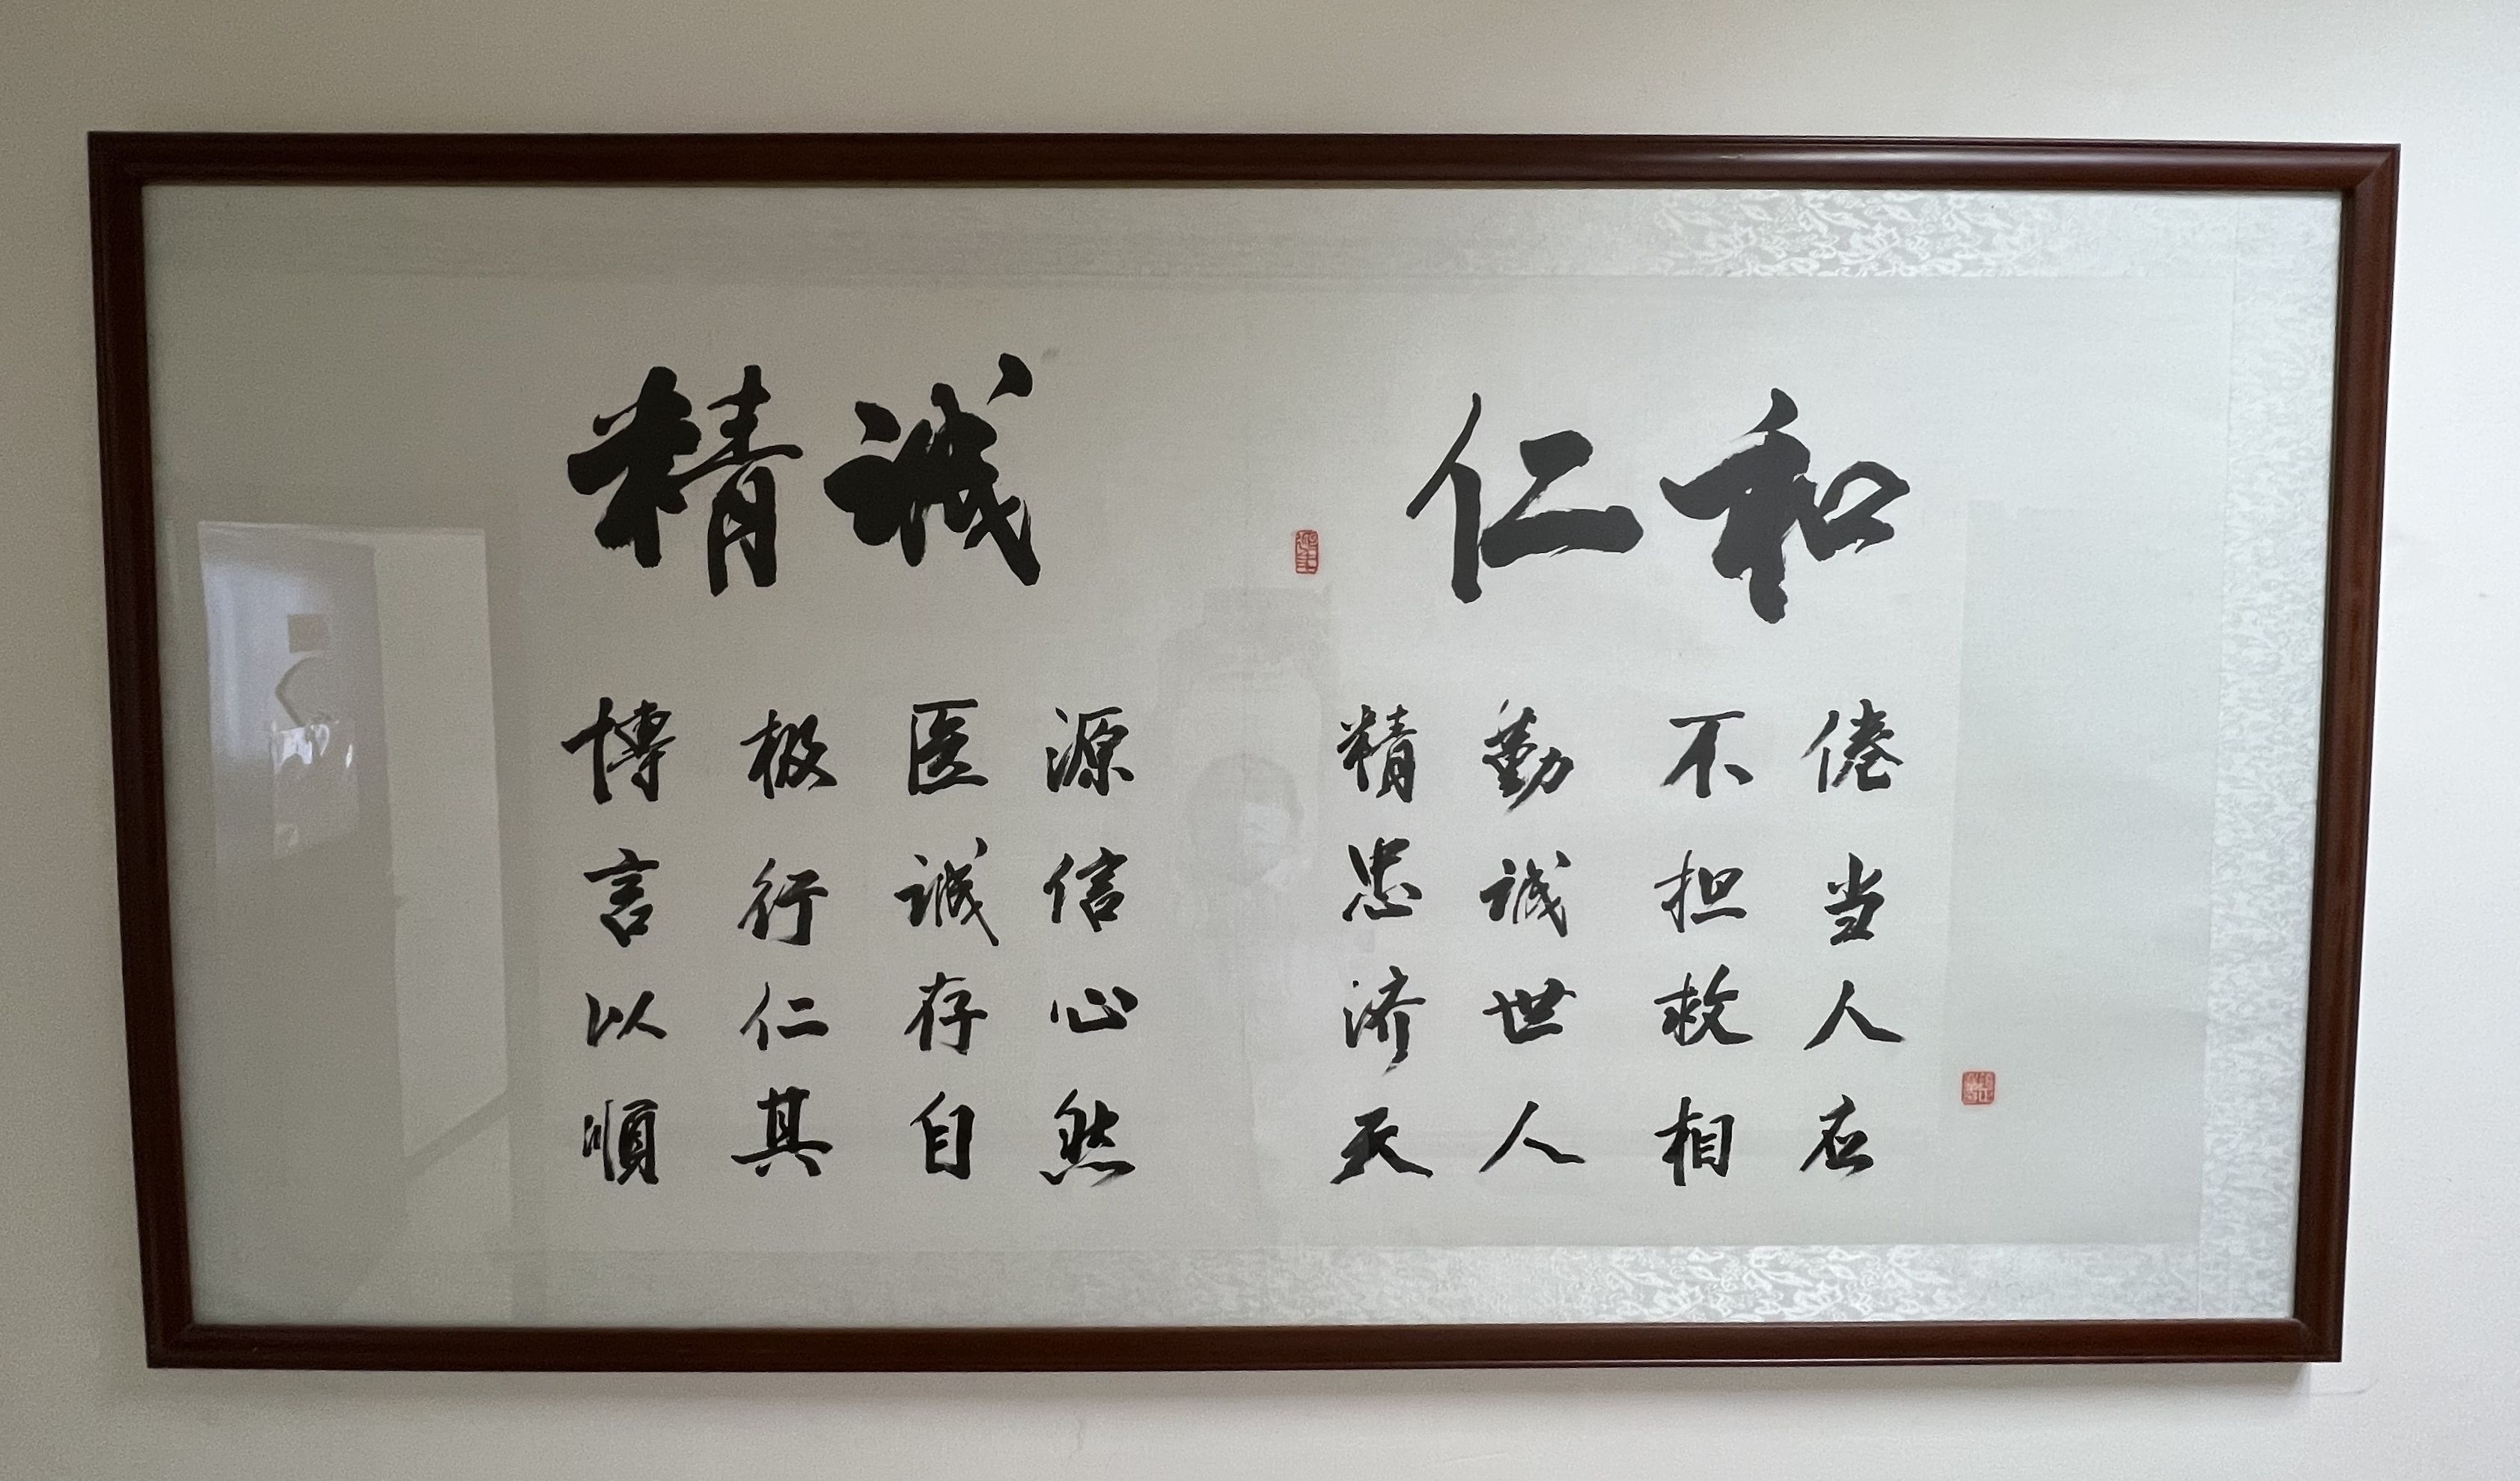 精诚
博极医源
言行诚信
以仁存心
順其自然
仁和
精勤不倦
忠诚担当
济世救人
天人相应